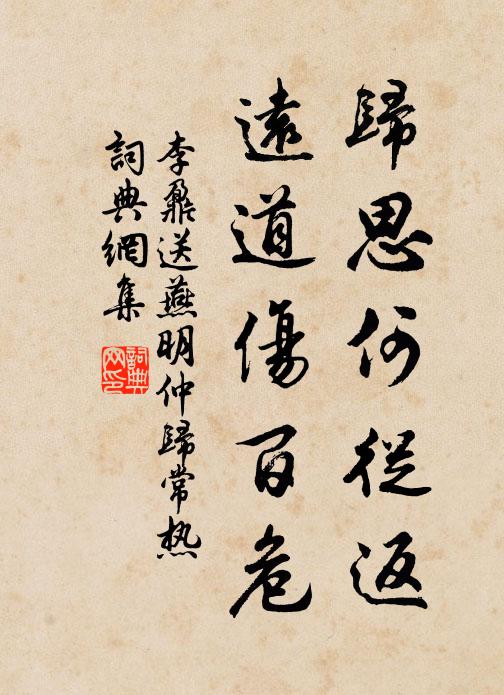 歸思何從返
遠道傷百危
李鼐送燕明仲歸常热
詞典網集
詞典網印